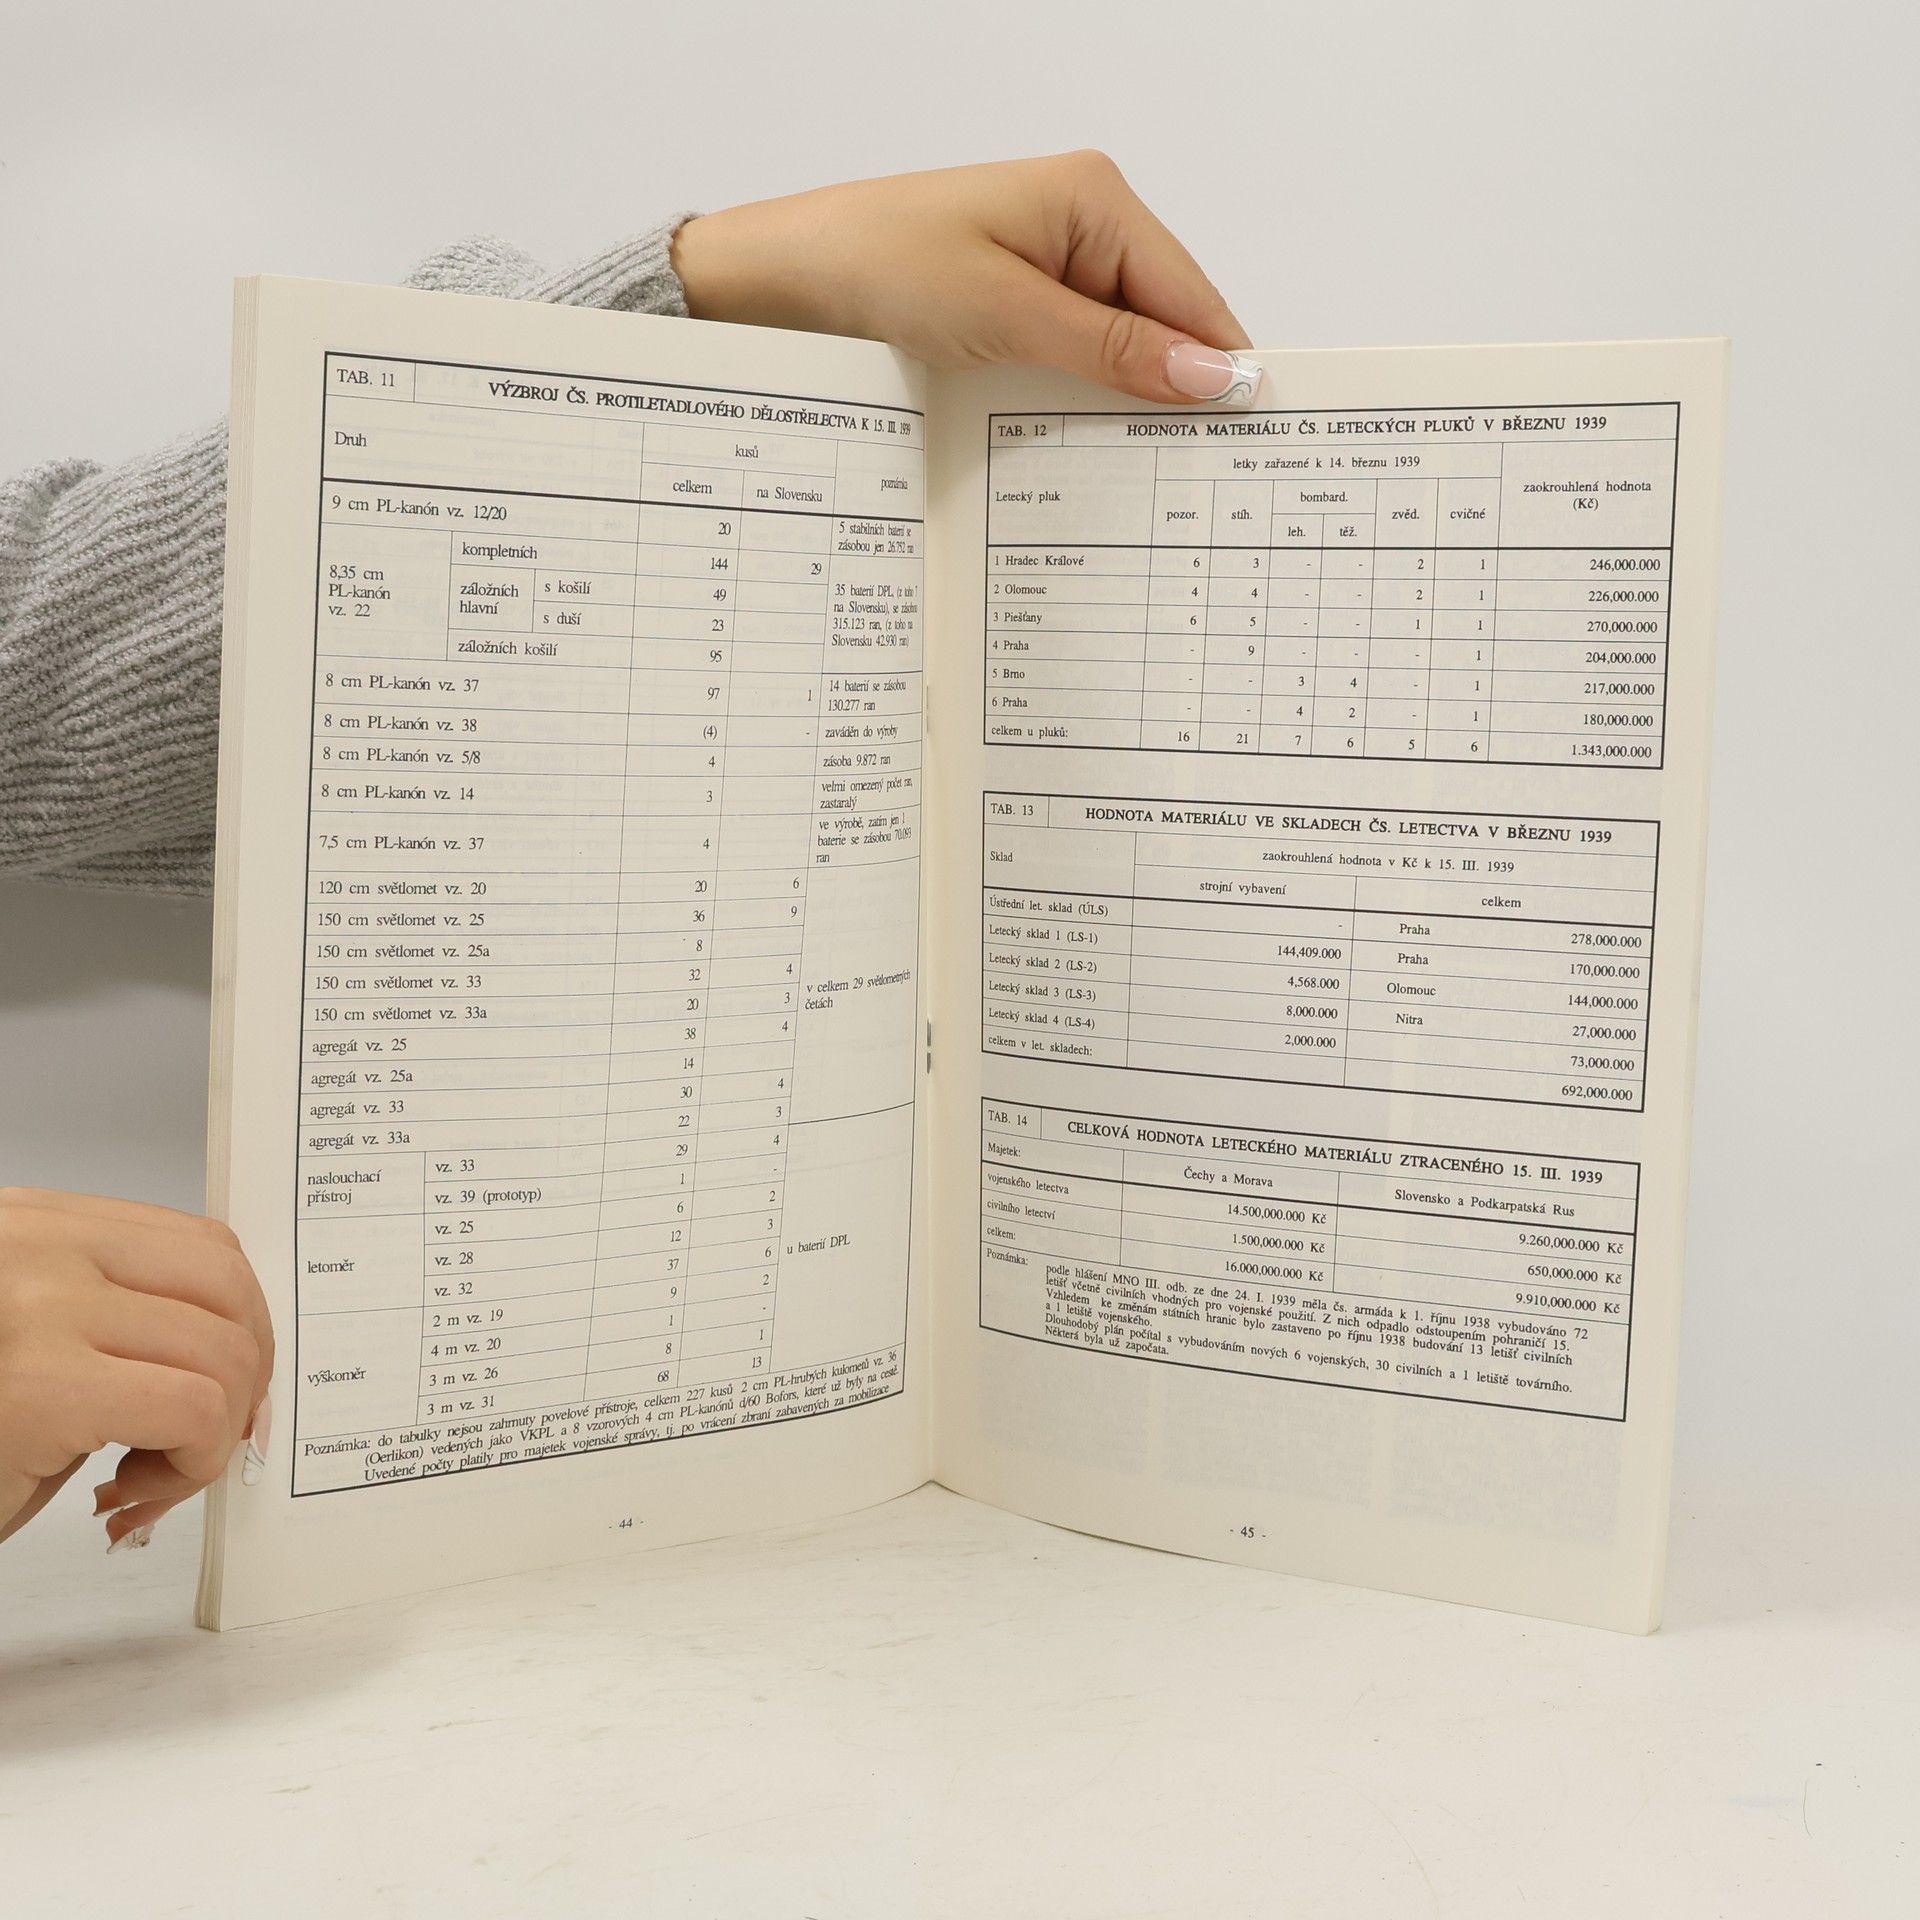 TAB. 11 VÝZBROJ ČS. PROTILETADLOVÉHO DĚLOSTŘELECTVA K 15. III. 1939
Druh kusů poznámka
celkem na Slovensku
9 cm PL-kanón vz. 12/20 20 5 stabilních baterií se
zásobou jen 26.752 ran
8,35 cm
PL-kanón
vz. 22
kompletních 144 29
záložních
hlavní
s košilí 49
s duší 23
záložních košilí 95
35 baterií DPL, (z toho 7
na Slovensku), se zásobou
315.123 ran, (z toho na
Slovensku 42.930 ran)
8 cm PL-kanón vz. 37 97 1 14 baterií se zásobou
130.277 ran
8 cm PL-kanón vz. 38 (4) - zaváděn do výroby
8 cm PL-kanón vz. 5/8 4 zásoba 9.872 ran
8 cm PL-kanón vz. 14 3 velmi omezený počet ran,
zastaralý
7,5 cm PL-kanón vz. 37 4 ve výrobě, zatím jen 1
baterie se zásobou 70.093
ran
120 cm světlomet vz. 20 20 6
150 cm světlomet vz. 25 36 9
150 cm světlomet vz. 25a 8
150 cm světlomet vz. 33 32 4
150 cm světlomet vz. 33a 20 3
v celkem 29 světlometných
četách
agregát vz. 25 38 4
agregát vz. 25a 14
agregát vz. 33 30 4
agregát vz. 33a 22 3
naslouchací
přístroj
vz. 33 29 4
vz. 39 (prototyp) 1 -
letoměr
vz. 25 6 2
vz. 28 12 3
vz. 32 37 6
u baterií DPL
výškoměr
2 m vz. 19 9 2
4 m vz. 20 1 -
3 m vz. 26 8 1
3 m vz. 31 68 13
Poznámka: do tabulky nejsou zahrnuty povelové přístroje, celkem 227 kusů 2 cm PL-hrubých kulometů vz. 36
(Oerlikon) vedených jako VKPL a 8 vzorových 4 cm PL-kanónů d/60 Bofors, které už byly na cestě.
Uvedené počty platily pro majetek vojenské správy, tj. po vrácení zbraní zabavených za mobilizace
- 44 -
TAB. 12 HODNOTA MATERIÁLU ČS. LETECKÝCH PLUKŮ V BŘEZNU 1939
Letecký pluk letky zařazené k 14. březnu 1939 zaokrouhlená hodnota
(Kč)
pozor. stíh. bombard. zvěd. cvičné
leh. těž.
1 Hradec Králové 6 3 - - 2 1 246,000.000
2 Olomouc 4 4 - - 2 1 226,000.000
3 Piešťany 6 5 - - 1 1 270,000.000
4 Praha - 9 - - - 1 204,000.000
5 Brno - - 3 4 - 1 217,000.000
6 Praha - - 4 2 - 1 180,000.000
celkem u pluků: 16 21 7 6 5 6 1.343,000.000
TAB. 13 HODNOTA MATERIÁLU VE SKLADECH ČS. LETECTVA V BŘEZNU 1939
Sklad zaokrouhlená hodnota v Kč k 15. III. 1939
strojní vybavení celkem
Ústřední let. sklad (ÚLS) - Praha 278,000.000
Letecký sklad 1 (LS-1) 144,409.000 Praha 170,000.000
Letecký sklad 2 (LS-2) 4,568.000 Olomouc 144,000.000
Letecký sklad 3 (LS-3) 8,000.000 Nitra 27,000.000
Letecký sklad 4 (LS-4) 2,000.000 73,000.000
celkem v let. skladech: 692,000.000
TAB. 14 CELKOVÁ HODNOTA LETECKÉHO MATERIÁLU ZTRACENÉHO 15. III. 1939
Majetek: Čechy a Morava Slovensko a Podkarpatská Rus
vojenského letectva 14.500,000.000 Kč 9.260,000.000 Kč
civilního letectví 1.500,000.000 Kč 650,000.000 Kč
celkem: 16.000,000.000 Kč 9.910,000.000 Kč
Poznámka: podle hlášení MNO III. odb. ze dne 24. I. 1939 měla čs. armáda k 1. říjnu 1938 vybudováno 72
letišť včetně civilních vhodných pro vojenské použití. Z nich odpadlo odstoupením pohraničí 15.
Vzhledem ke změnám státních hranic bylo zastaveno po říjnu 1938 budování 13 letišť civilních
a 1 letiště vojenského.
Dlouhodobý plán počítal s vybudováním nových 6 vojenských, 30 civilních a 1 letiště továrního.
Některá byla už započata.
- 45 -